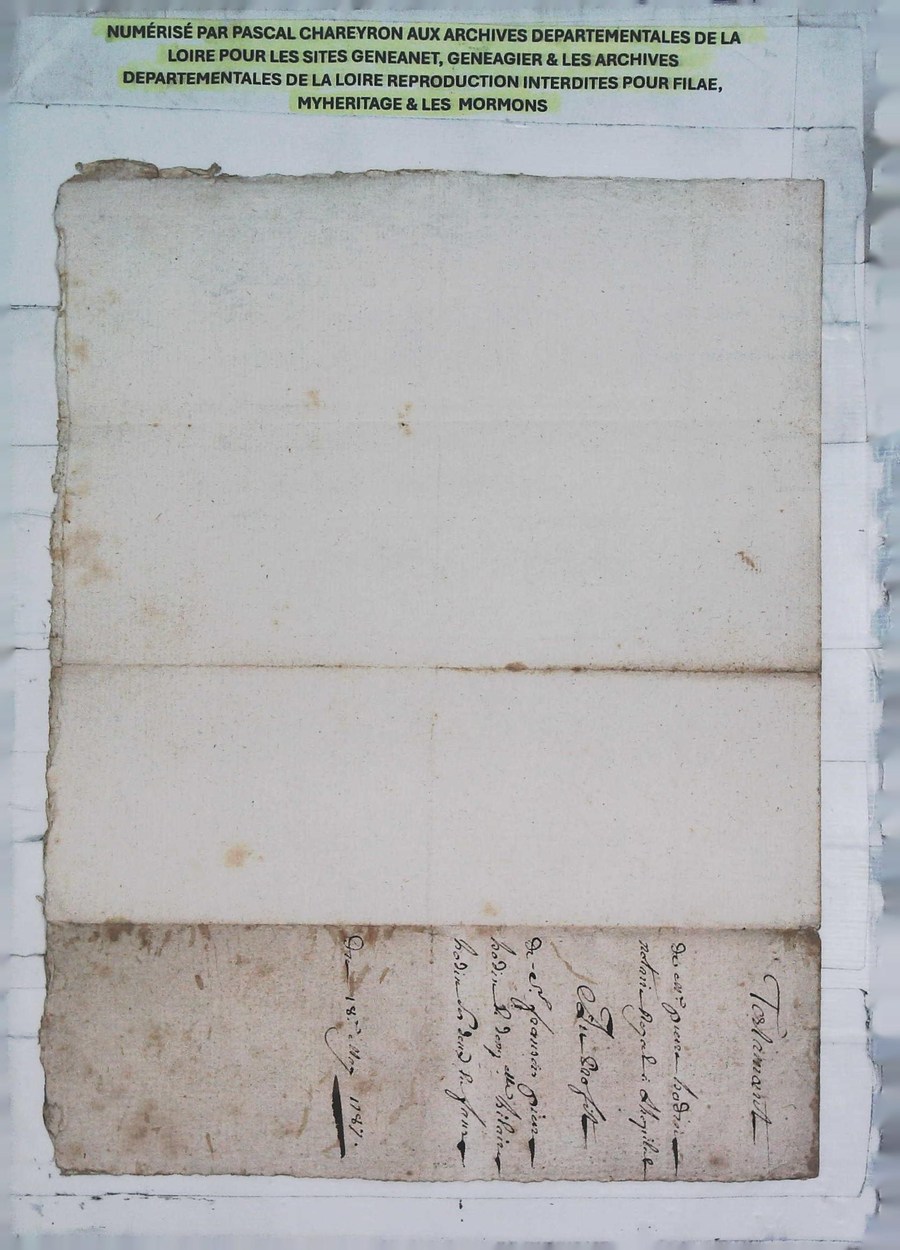 NUMÉRISÉ PAR PASCAL CHAREYRON AUX ARCHIVES DEPARTEMENTALES DE LA
LOIRE POUR LES SITES GENEANET, GENEAGIER & LES ARCHIVES
DEPARTEMENTALES DE LA LOIRE REPRODUCTION INTERDITES POUR FILAE,
MYHERITAGE & LES MORMONS
Testament
de me pierre hodin
notaire Royal à
Au profit
de sr. françois pierre
hodin & de
hodin ses
Du 18e May 1787.